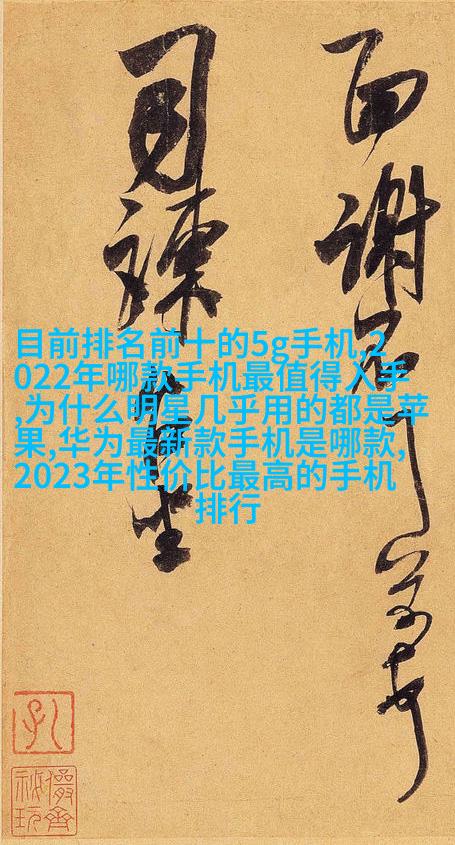 目前排名前十的5g手机,2
022年哪款手机最值得入手
,为什么明星几乎用的都是苹
果,华为最新款手机是哪款,
2023年性价比最高的手机
排行
面謝
司諫坐
儼齋
秘玩